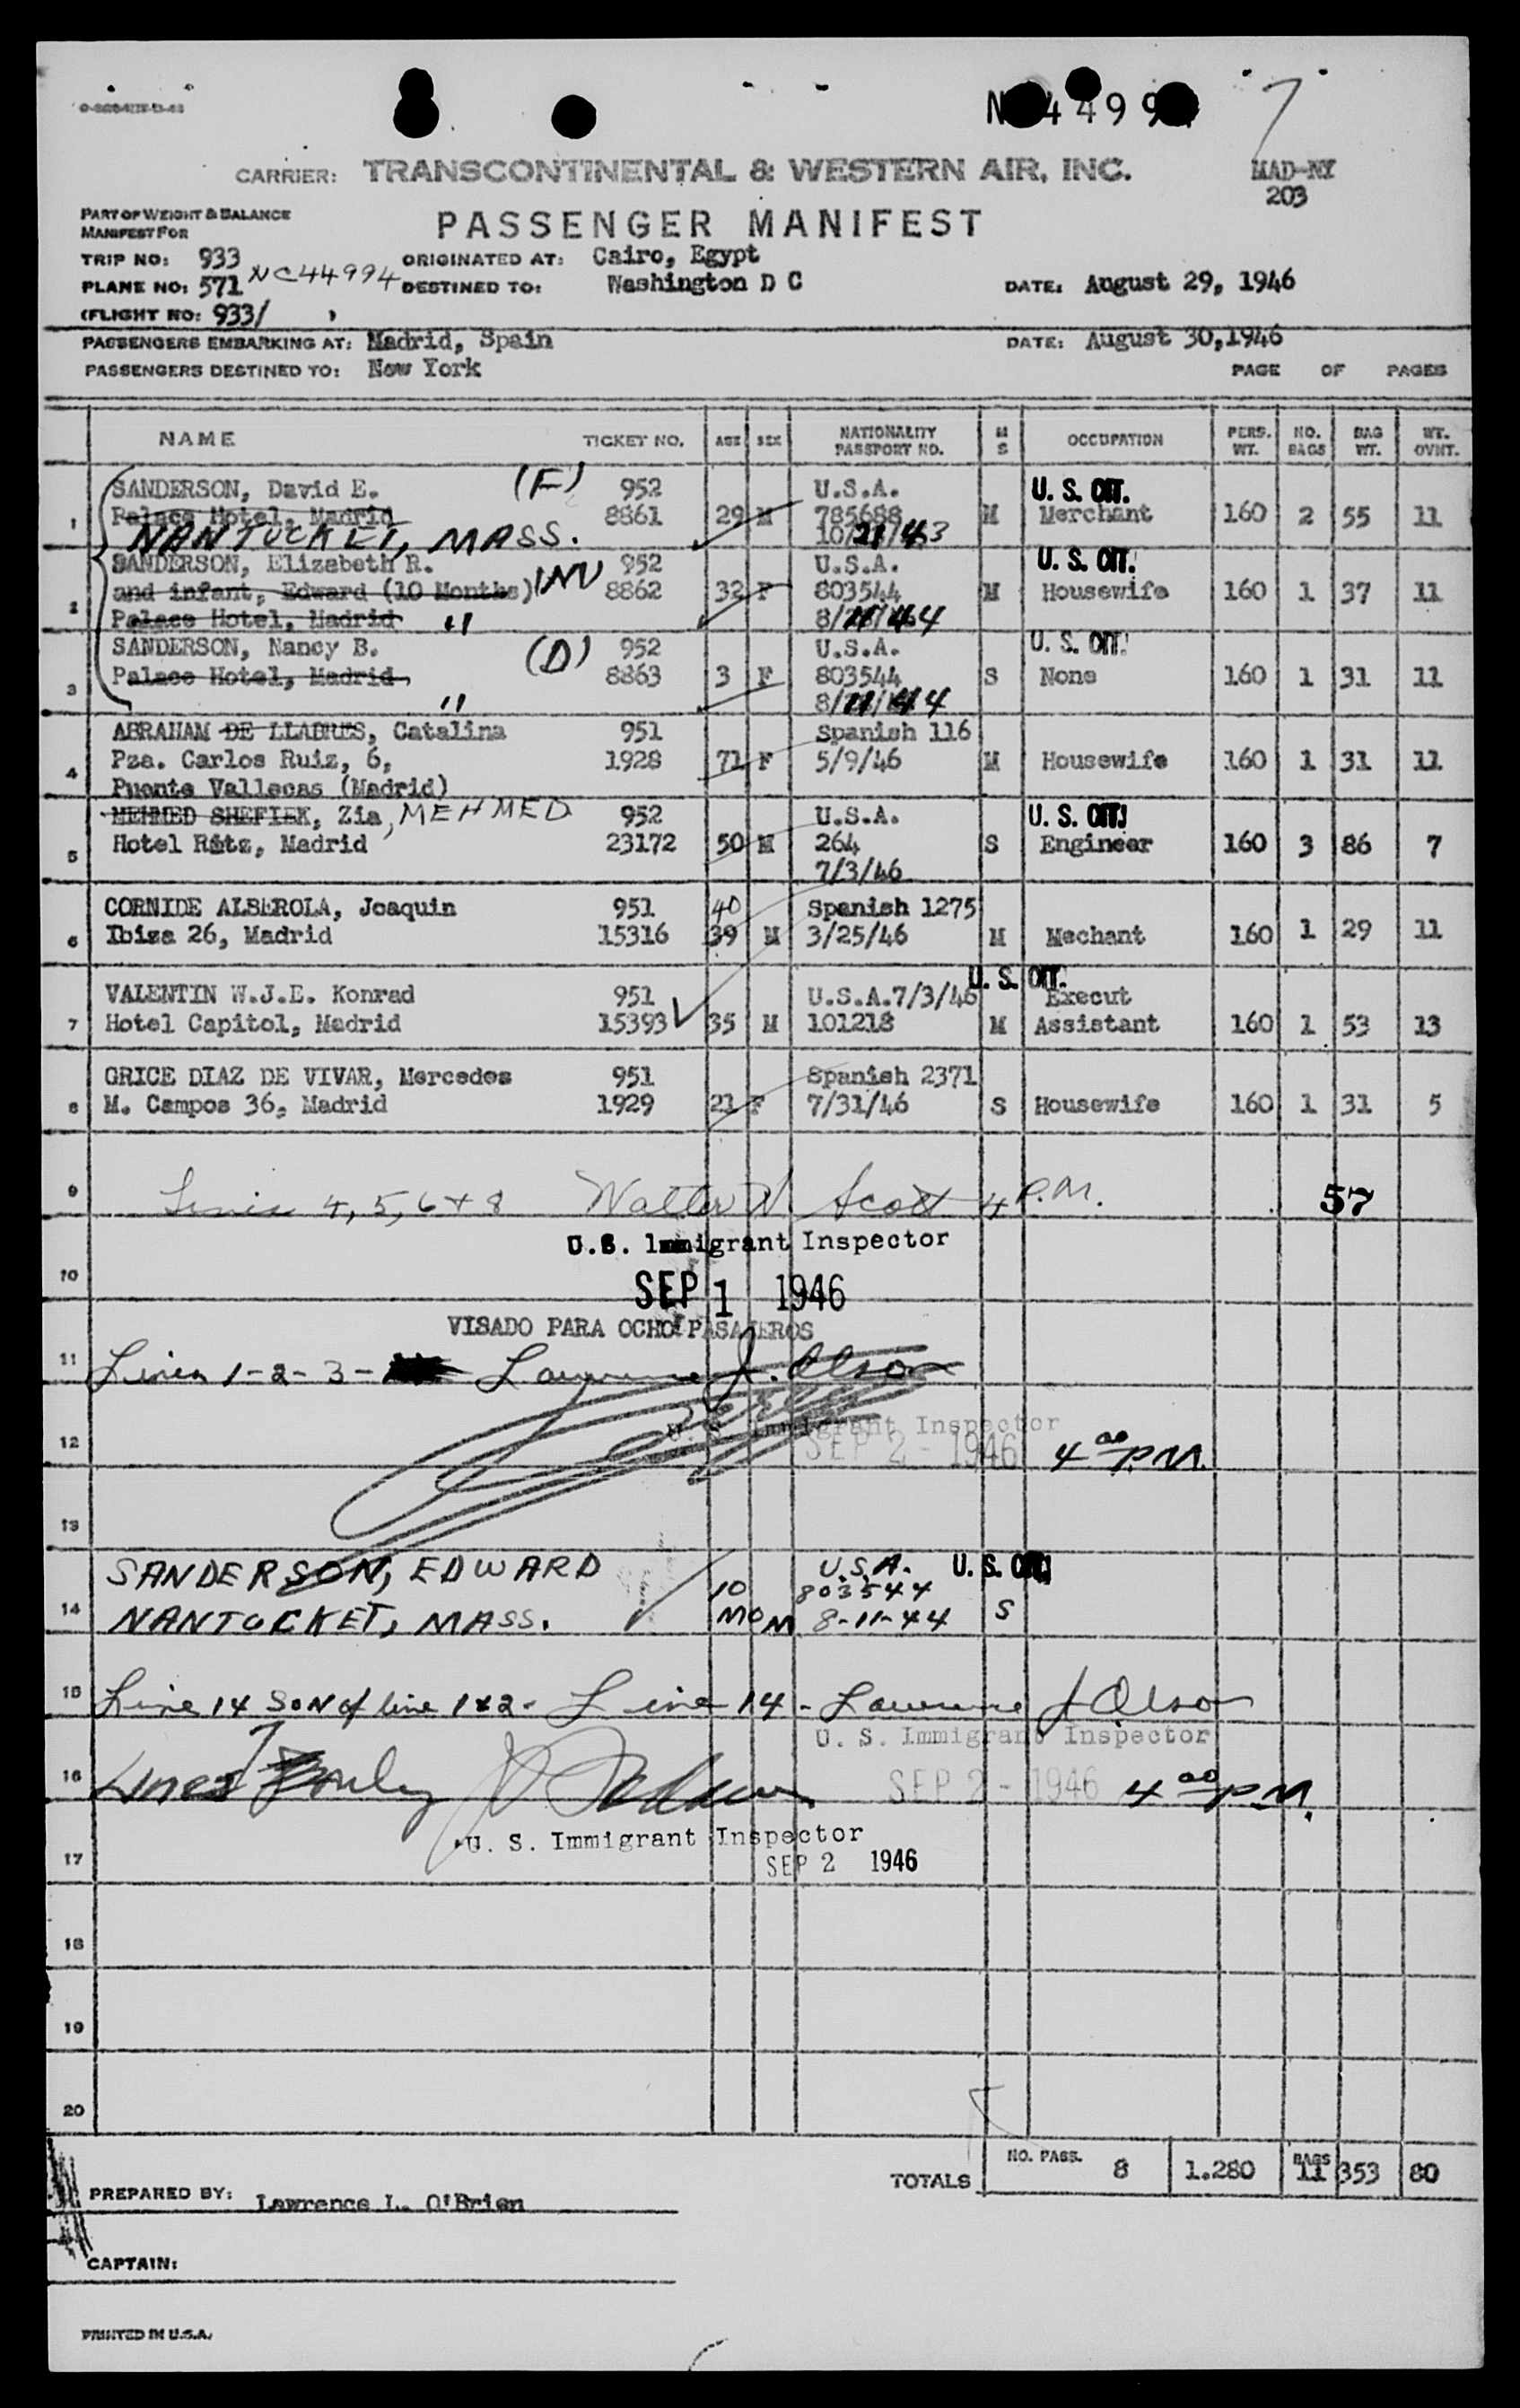 N 4499
7
CARRIER: TRANSCONTINENTAL & WESTERN AIR, INC.
MAD-NY
203
PART OF WEIGHT & BALANCE
MANIFEST FOR
PASSENGER MANIFEST
TRIP NO: 933 ORIGINATED AT: Cairo, Egypt
PLANE NO: 571 NC44994 DESTINED TO: Washington D C DATE: August 29, 1946
(FLIGHT NO: 933/ )
PASSENGERS EMBARKING AT: Madrid, Spain DATE: August 30, 1946
PASSENGERS DESTINED TO: New York PAGE OF PAGES
NAME TICKET NO. AGE SEX NATIONALITY PASSPORT NO. M S OCCUPATION PERS. WT. NO. BAGS BAG WT. WT. OVNT.
SANDERSON, David E. (F) 952 U.S.A. U. S. CIT.
1 Palace Hotel, Madrid 8861 29 M 785688 M Merchant 160 2 55 11
NANTUCKET, MASS. 10/21/43
SANDERSON, Elizabeth R. 952 U.S.A. U. S. CIT.
2 and infant, Edward (10 Months) INV 8862 32 F 803544 M Housewife 160 1 37 11
Palace Hotel, Madrid " 8/11/44
SANDERSON, Nancy B. (D) 952 U.S.A. U. S. CIT.
3 Palace Hotel, Madrid, 8863 3 F 803544 S None 160 1 31 11
" 8/11/44
ABRAHAM DE LLABRES, Catalina 951 Spanish 116
4 Pza. Carlos Ruiz, 6, 1928 71 F 5/9/46 M Housewife 160 1 31 11
Puente Vallecas (Madrid)
MEHMED SHEFIEK, Zia, MEHMED 952 U.S.A. U. S. CIT.
5 Hotel Ritz, Madrid 23172 50 M 264 S Engineer 160 3 86 7
7/3/46
CORNIDE ALBEROLA, Joaquin 951 40 Spanish 1275
6 Ibiza 26, Madrid 15316 39 M 3/25/46 M Mechant 160 1 29 11
U. S. CIT.
VALENTIN W.J.E. Konrad 951 U.S.A.7/3/46 Execut
7 Hotel Capitol, Madrid 15393 35 M 101218 M Assistant 160 1 53 13
GRICE DIAZ DE VIVAR, Mercedes 951 Spanish 2371
8 M. Campos 36, Madrid 1929 21 F 7/31/46 S Housewife 160 1 31 5
9 Lines 4, 5, 6 + 8 Walter W. Scott 4 P.M. 57
U.S. Immigrant Inspector
10 SEP 1 1946
VISADO PARA OCHO PASAJEROS
11 Lines 1-2-3- Lawrence J. Olson
U. S. Immigrant Inspector
12 SEP 2 - 1946 4 00 P.M.
13
SANDERSON, EDWARD U.S.A. U. S. CIT.
10 803544
14 NANTUCKET, MASS. MO M 8-11-44 S
15 Line 14 SON of line 1&2 - Line 14 - Lawrence J Olson
U. S. Immigrant Inspector
16 Line 7 only SEP 2 - 1946 4 00 P.M.
U. S. Immigrant Inspector
17 SEP 2 1946
18
19
20
TOTALS NO. PASS. 8 1.280 BAGS 11 353 80
PREPARED BY: Lawrence L. O'Brien
CAPTAIN:
PRINTED IN U.S.A.